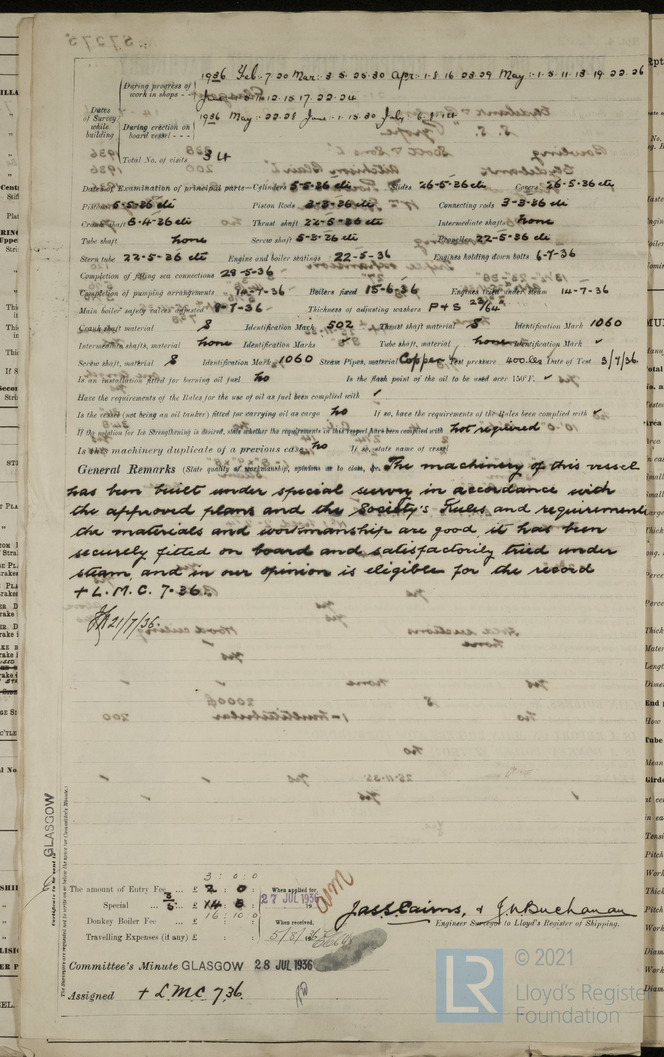 During progress of work in shops - - 1936 Feb. 7. 20 Mar: 3. 5. 25. 30 Apr: 1. 8. 16. 23. 29 May: 1. 5. 11. 13. 19. 22. 26
June 12. 15. 17. 22. 24
Dates of Survey while building
During erection on board vessel - - - 1936 May: 22. 28 June: 1. 15. 30 July
Total No. of visits 34
Dates of Examination of principal parts—Cylinders 5-5-36 etc Slides 26-5-36 etc Covers 26-5-36 etc
Pistons 5-5-36 etc Piston Rods 3-3-36 etc Connecting rods 3-3-36 etc
Crank shaft 8-4-36 etc Thrust shaft 22-5-36 etc Intermediate shafts none
Tube shaft none Screw shaft 5-3-36 etc Propeller 22-5-36 etc
Stern tube 22-5-36 etc Engine and boiler seatings 22-5-36 Engines holding down bolts 6-7-36
Completion of fitting sea connections 28-5-36
Completion of pumping arrangements 14-7-36 Boilers fixed 15-6-36 Engines tried under steam 14-7-36
Main boiler safety valves adjusted 8-7-36 Thickness of adjusting washers P + S 23/64"
Crank shaft material S Identification Mark 502 Thrust shaft material S Identification Mark 1060
Intermediate shafts, material none Identification Marks ✓ Tube shaft, material none Identification Mark ✓
Screw shaft, material S Identification Mark 1060 Steam Pipes, material Copper Test pressure 400 lbs Date of Test 3/7/36.
Is an installation fitted for burning oil fuel no Is the flash point of the oil to be used over 150°F. ✓
Have the requirements of the Rules for the use of oil as fuel been complied with ✓
Is the vessel (not being an oil tanker) fitted for carrying oil as cargo no If so, have the requirements of the Rules been complied with ✓
If the notation for Ice Strengthening is desired, state whether the requirements in this respect have been complied with not required
Is this machinery duplicate of a previous case no If so, state name of vessel
General Remarks (State quality of workmanship, opinions as to class, &c. The machinery of this vessel
has been built under special survey in accordance with
the approved plans and the Society's Rules and requirements
the materials and workmanship are good, it has been
securely fitted on board and satisfactorily tried under
steam, and in our opinion is eligible for the record
+ L.M.C. 7-36.
21/7/36.
GLASGOW
3 : 0 : 0
The amount of Entry Fee ... £ 2 : 0 : When applied for,
Special ... £ 14 : 8 : 27 JUL 1936
16 : 10 : 0
Donkey Boiler Fee ... £ When received,
Travelling Expenses (if any) £
Jas S Cairns, + J. W Buchanan
Engineer Surveyor to Lloyd's Register of Shipping.
Committee's Minute GLASGOW 28 JUL 1936
Assigned + LMC 7.36.
© 2021
LR
Lloyd's Register
Foundation